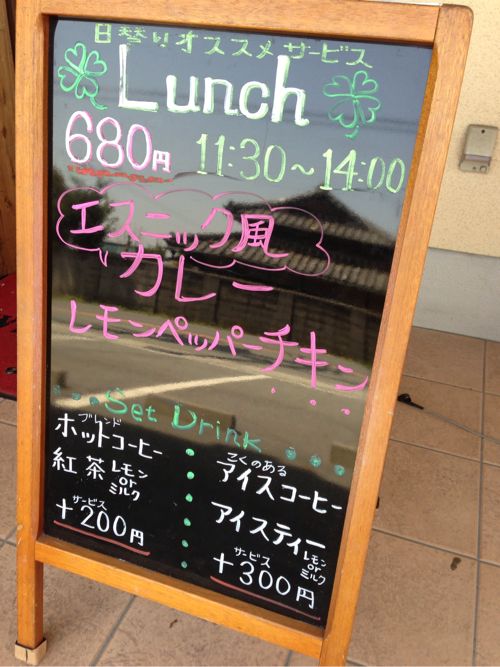 日替りオススメサービス
Lunch
680円 11:30～14:00
エスニック風
カレー
レモンペッパーチキン
Set Drink
ブレンド
ホットコーヒー
紅茶 レモン or ミルク
サービス
+200円
こくのある
アイスコーヒー
アイスティー レモン or ミルク
サービス
+300円